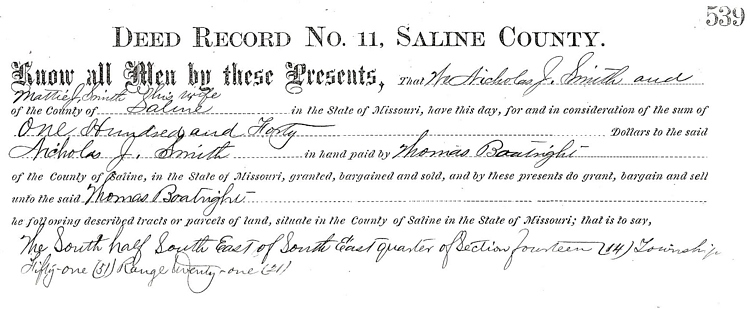 539
DEED RECORD No. 11, SALINE COUNTY.
Know all Men by these Presents, That We Nicholas J. Smith and
Mattie J. Smith his wife
of the County of Saline in the State of Missouri, have this day, for and in consideration of the sum of
One Hundred and Forty Dollars to the said
Nicholas J. Smith in hand paid by Thomas Boatright
of the County of Saline, in the State of Missouri, granted, bargained and sold, and by these presents do grant, bargain and sell
unto the said Thomas Boatright
he following described tracts or parcels of land, situate in the County of Saline in the State of Missouri; that is to say,
The South half South East of South East quarter of Section fourteen (14) Township
Fifty-one (51) Range twenty-one (21)